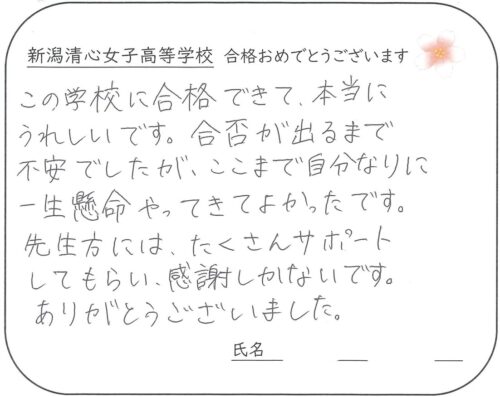 新潟清心女子高等学校 合格おめでとうございます
この学校に合格できて、本当に
うれしいです。合否が出るまで
不安でしたが、ここまで自分なりに
一生懸命やってきてよかったです。
先生方には、たくさんサポート
してもらい、感謝しかないです。
ありがとうございました。
氏名